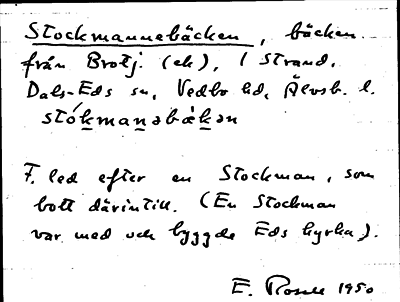 Stockmannebäcken, bäcken
från Brotj. (ek), / Strand,
Dals-Eds sn, Vedbo hd, Älvsb. l.
stókmanəbækən
F. led efter en Stockman, som
bott därintill. (En Stockman
var med och byggde Eds kyrka).
E. 1950